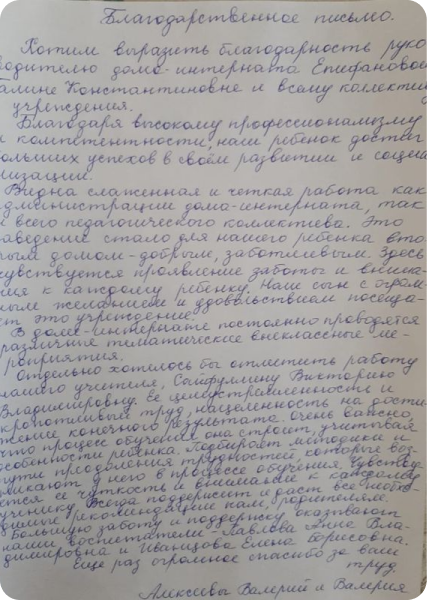 Благодарственное письмо.
Хотим выразить благодарность руко
водителю дома-интерната Епифановой
алине Константиновне и всему коллектив
учреждения.
Благодаря высокому профессионализму
и компитентности, наш ребенок достиг
больших успехов в своём развитии и социа
лизации.
Видна слаженная и четкая работа как
администрации дома-интерната, так
и всего педагогического коллектива. Это
заведение стало для нашего ребенка вто-
рым домом - добрым, заботливым. Здесь
чувствуется проявление заботы и внима-
ния к каждому ребенку. Наш сын с огром-
ным желанием и удовольствием посеща-
ет это учреждение.
В доме-интернате постоянно проводятся
различные тематические внеклассные ме-
роприятия.
Отдельно хотелось бы отметить работу
нашего учителя, Сайфуллину Викторию
Владимировну. Ее целеустремленность и
кропотливый труд, нацеленность на дости-
жение конечного результата очень важно,
что процесс обучения она строит, учитывая
особенности ребенка. Подбирает методики и
пути преодоления трудностей, которые воз-
никают у него в процессе обучения. Чувству-
ется ее чуткость и внимание к каждому
ученику. Всегда поддержит и даст все необхо-
димые рекомендации нам, родителям.
Большую заботу и поддержку оказывают
нам воспитатели - Павлова Анна Вла-
димировна и Иванцова Елена Борисовна.
Еще раз огромное спасибо за ваш
труд.
Алексеевы Валерий и Валерия